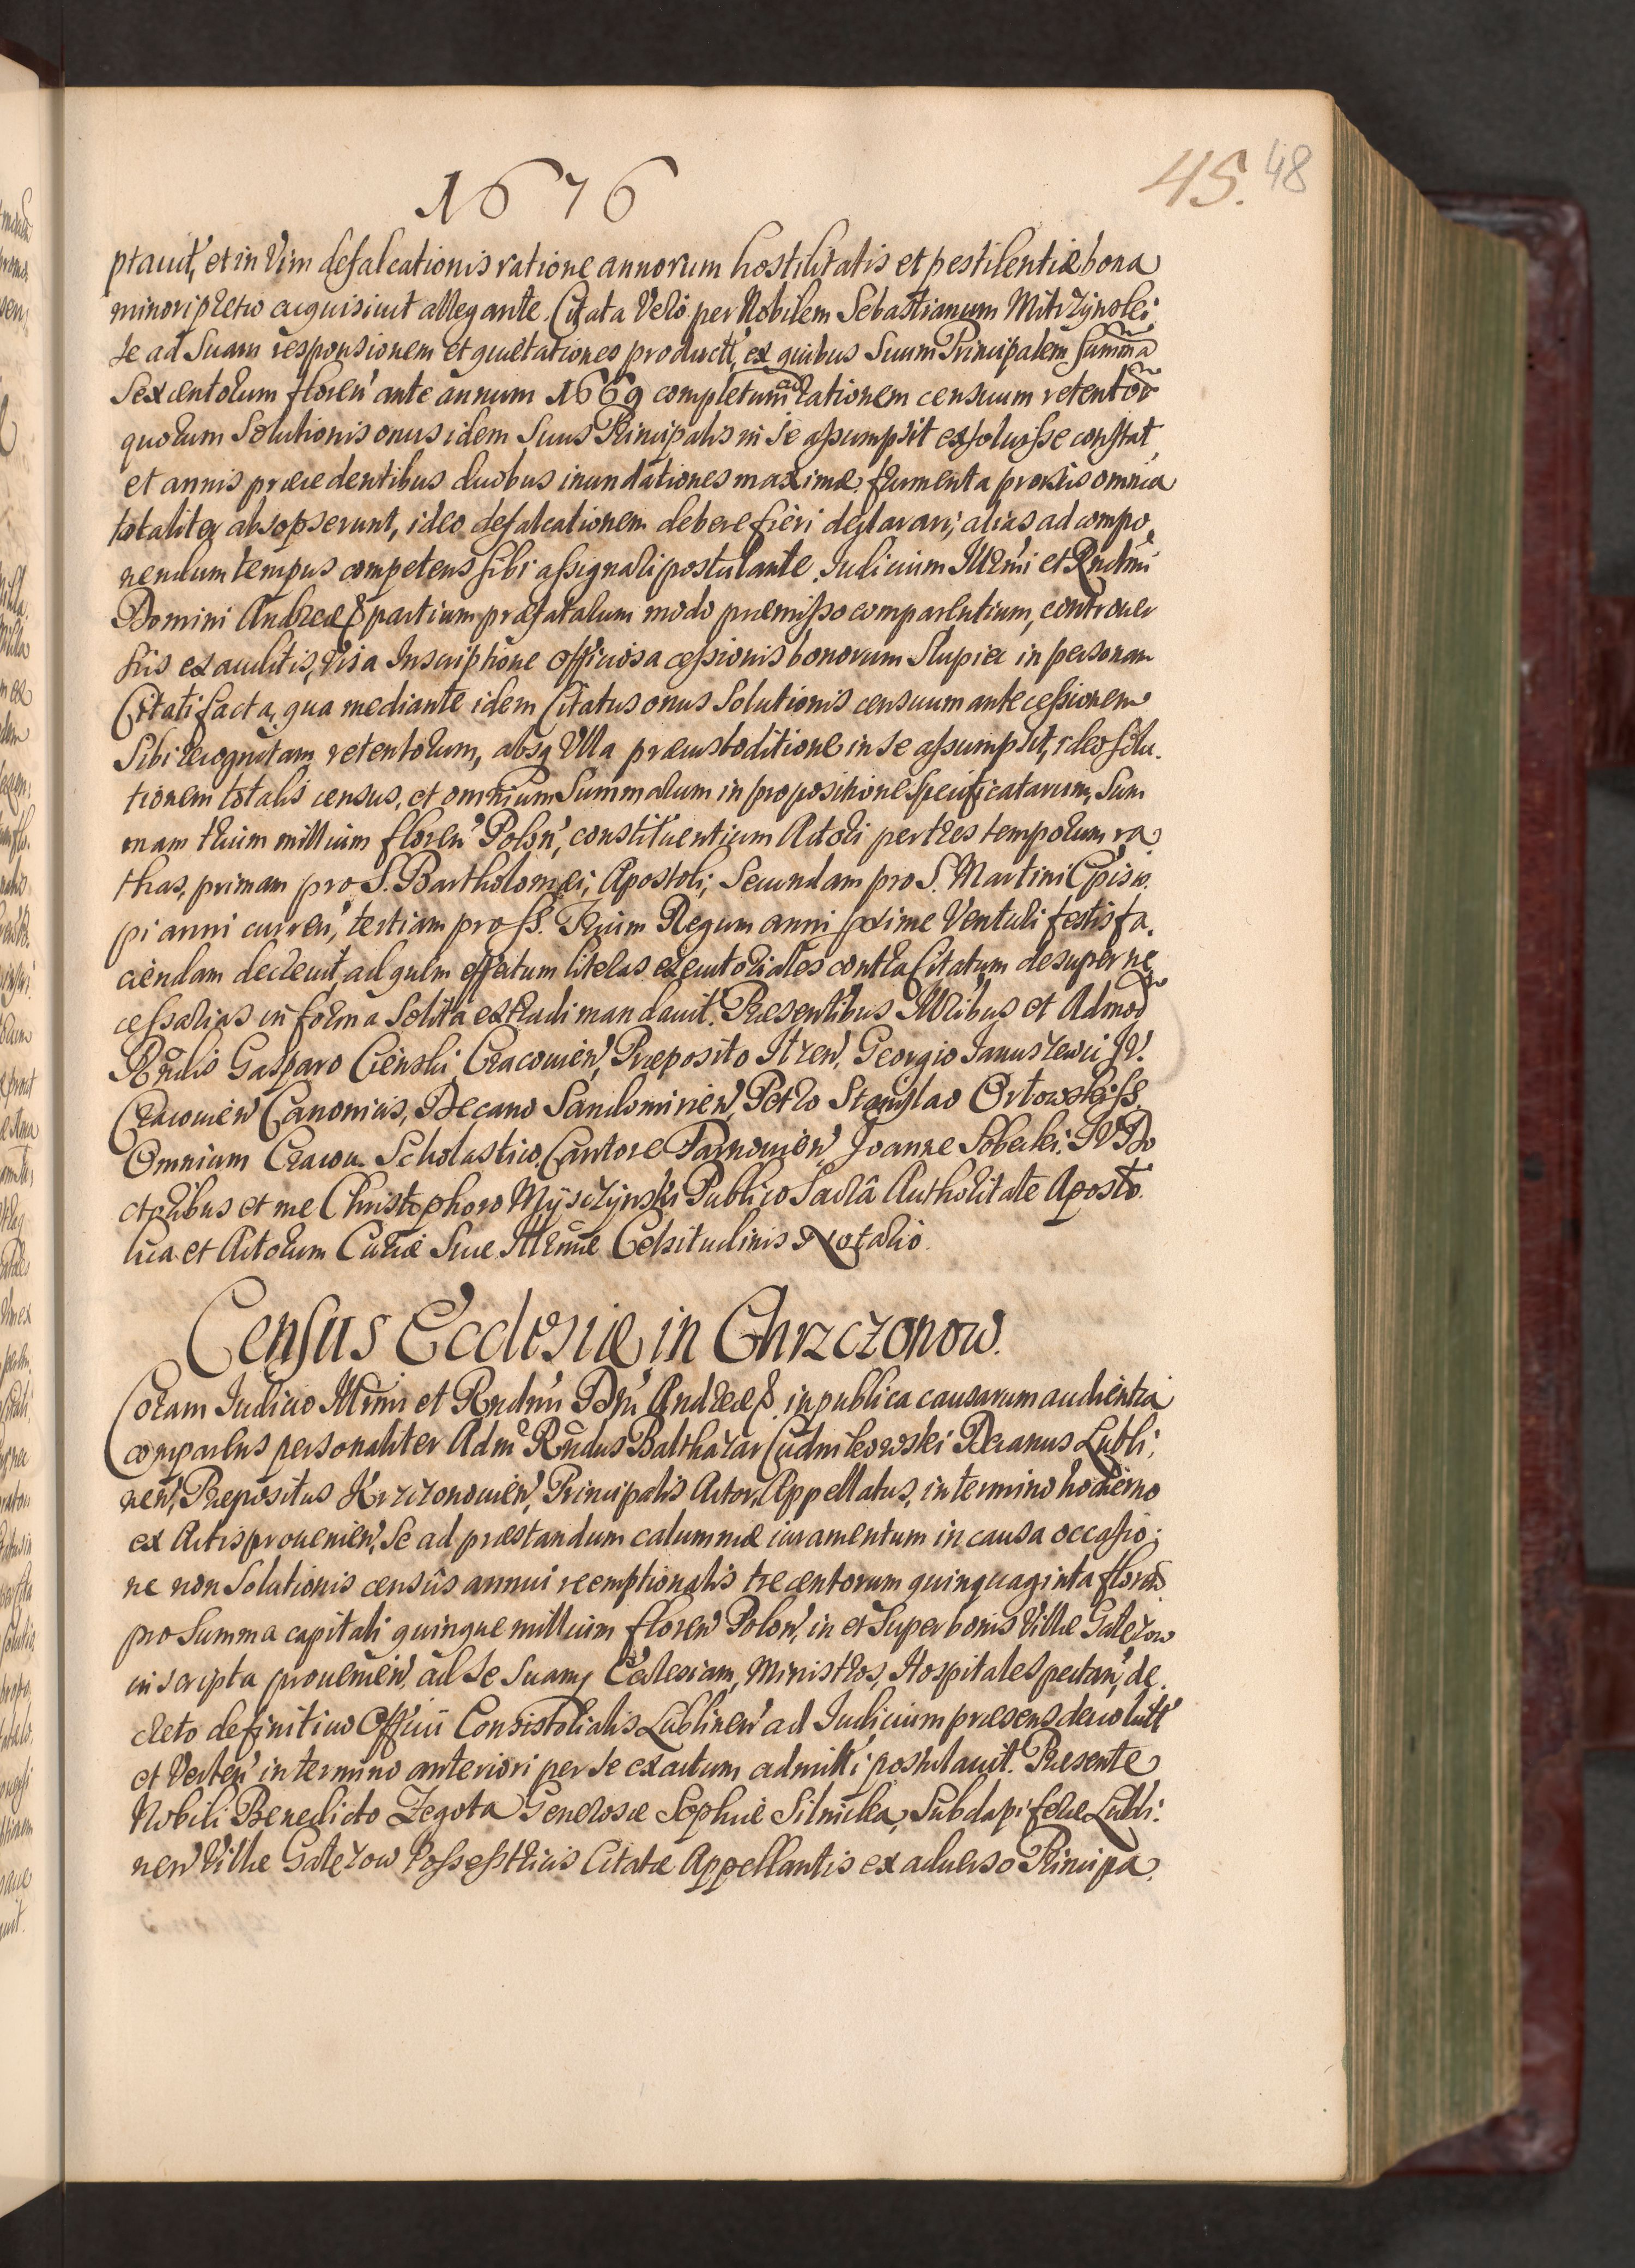 1676
45. 48
ptauit, et in Vim defalcationis ratione annorum hostilitatis et pestilentiæ bona
minori pretio acquisiuit allegante. Citata Vero per Nobilem Sebastianum Mitrzynski
se ad Suam responsionem et quietationes product', ex quibus Suum Principalem Summã
Sexcentorum floren' ante annum 1669 completum ad rationem censuum retentor
quorum Solutionis onus idem Suus Principalis in Se assumpsit exsoluisse constat,
et annis præcedentibus duobus inundationes maximæ frumenta prorsus omnia
totaliter absorpserunt, ideo defalcationem debere fieri declarari, alias ad compo
nendum tempus competens sibi assignari postulante. Iudicium Illrmi et Rndmi
Domini Andreæ & partium præfatarum modo præmisso comparentium, controuer
siis exauditis, Visa Inscriptione officiosa cessionis bonorum Slupia in personam
Citati facta, qua mediante idem Citatus onus Solutionis censuum ante cessionem
Sibi recognitam retentorum, absq Vlla præcustoditione in se assumpsit, ideo solu
tionem totalis census, et omnium Summarum in propositione specificatarum, Sum
mam trium millium floren' Polon', constituentium Actori per tres temporum ra
thas, primam pro S. Bartholomæi, Apostoli, Secundam pro S. Martini Episco
pi anni curren', tertiam pro SS. Trium Regum anni pxime Venturi festis fa.
ciendam decreuit, ad quem effectum literas executoriales contra Citatum desuper ne
cessarias in forma Solita extradi mandauit. Præsentibus Illribus et Admod
Rndis Gasparo Cieński, Cracouien', Præposito Ilzen', Georgio Ianuszewic IV.
Cracouien' Canonicis, Decano Sandomirien', Petro Stanislao Orłowski SS.
Omnium Cracou. Scholastico, Cantore Tarnouien', Joanne Sobecki. IV Do
ctoribus et me Christophoro Myszczynski Publico Sacrâ Authoritate Aposto
lica et Actorum Curiæ Suæ Illrmæ Celsitudinis Notario.
Census Ecclesiæ in Chrzczonow.
Coram Iudicio Illrmi et Rndmi Dni Andreæ &. in publica causarum audientia
comparens personaliter Adm Rndus Balthazar Cudnikowski Decanus Lubli,
nen', Præpositus Krzczonouien', Principalis Actor, Appellatus, in termino hodierno
ex Actis prouenien', Se ad præstandum calumniæ iuramentum in causa occasio,
ne non Solutionis censûs annui reemptionalis trecentorum quinquaginta floren
pro Summa capitali quinque millium floren' Polon', in et Super bonis Villæ Gałęzow
inscripta prouenien', ad Se Suamq Ecclesiam, Ministros, Hospitale spectan', de
creto definitiuo Officii Consistorialis Lublinen' ad Iudicium præsens deuolutt'
et Verten' in termino anteriori per se exactum admitti postulauit. Præsente
Nobili Benedicto Zegota Generosæ Sophiæ Silnicka, Subdapiferæ Lubli:
nen' Villæ Gałęzow Possesstricis Citatæ Appellantis ex aduerso Principa.